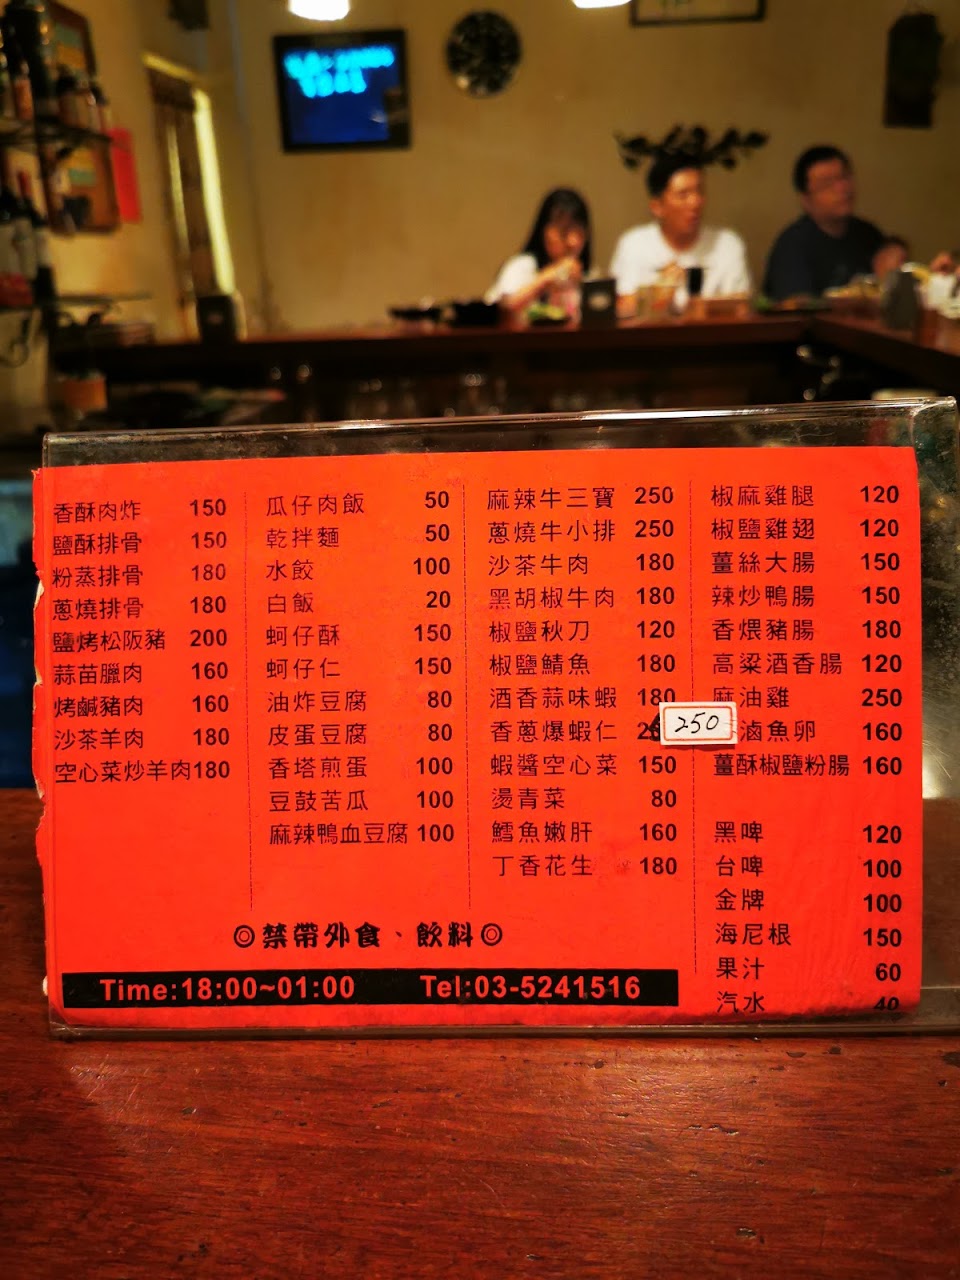 香酥肉炸 150
鹽酥排骨 150
粉蒸排骨 180
蔥燒排骨 180
鹽烤松阪豬 200
蒜苗臘肉 160
烤鹹豬肉 160
沙茶羊肉 180
空心菜炒羊肉 180
瓜仔肉飯 50
乾拌麵 50
水餃 100
白飯 20
蚵仔酥 150
蚵仔仁 150
油炸豆腐 80
皮蛋豆腐 80
香塔煎蛋 100
豆鼓苦瓜 100
麻辣鴨血豆腐 100
麻辣牛三寶 250
蔥燒牛小排 250
沙茶牛肉 180
黑胡椒牛肉 180
椒鹽秋刀 120
椒鹽鯖魚 180
酒香蒜味蝦 180
香蔥爆蝦仁 250
蝦醬空心菜 150
燙青菜 80
鱈魚嫩肝 160
丁香花生 180
椒麻雞腿 120
椒鹽雞翅 120
薑絲大腸 150
辣炒鴨腸 150
香煨豬腸 180
高粱酒香腸 120
麻油雞 250
滷魚卵 160
薑酥椒鹽粉腸 160
黑啤 120
台啤 100
金牌 100
海尼根 150
果汁 60
汽水 40
◎禁帶外食、飲料◎
Time:18:00~01:00 Tel:03-5241516